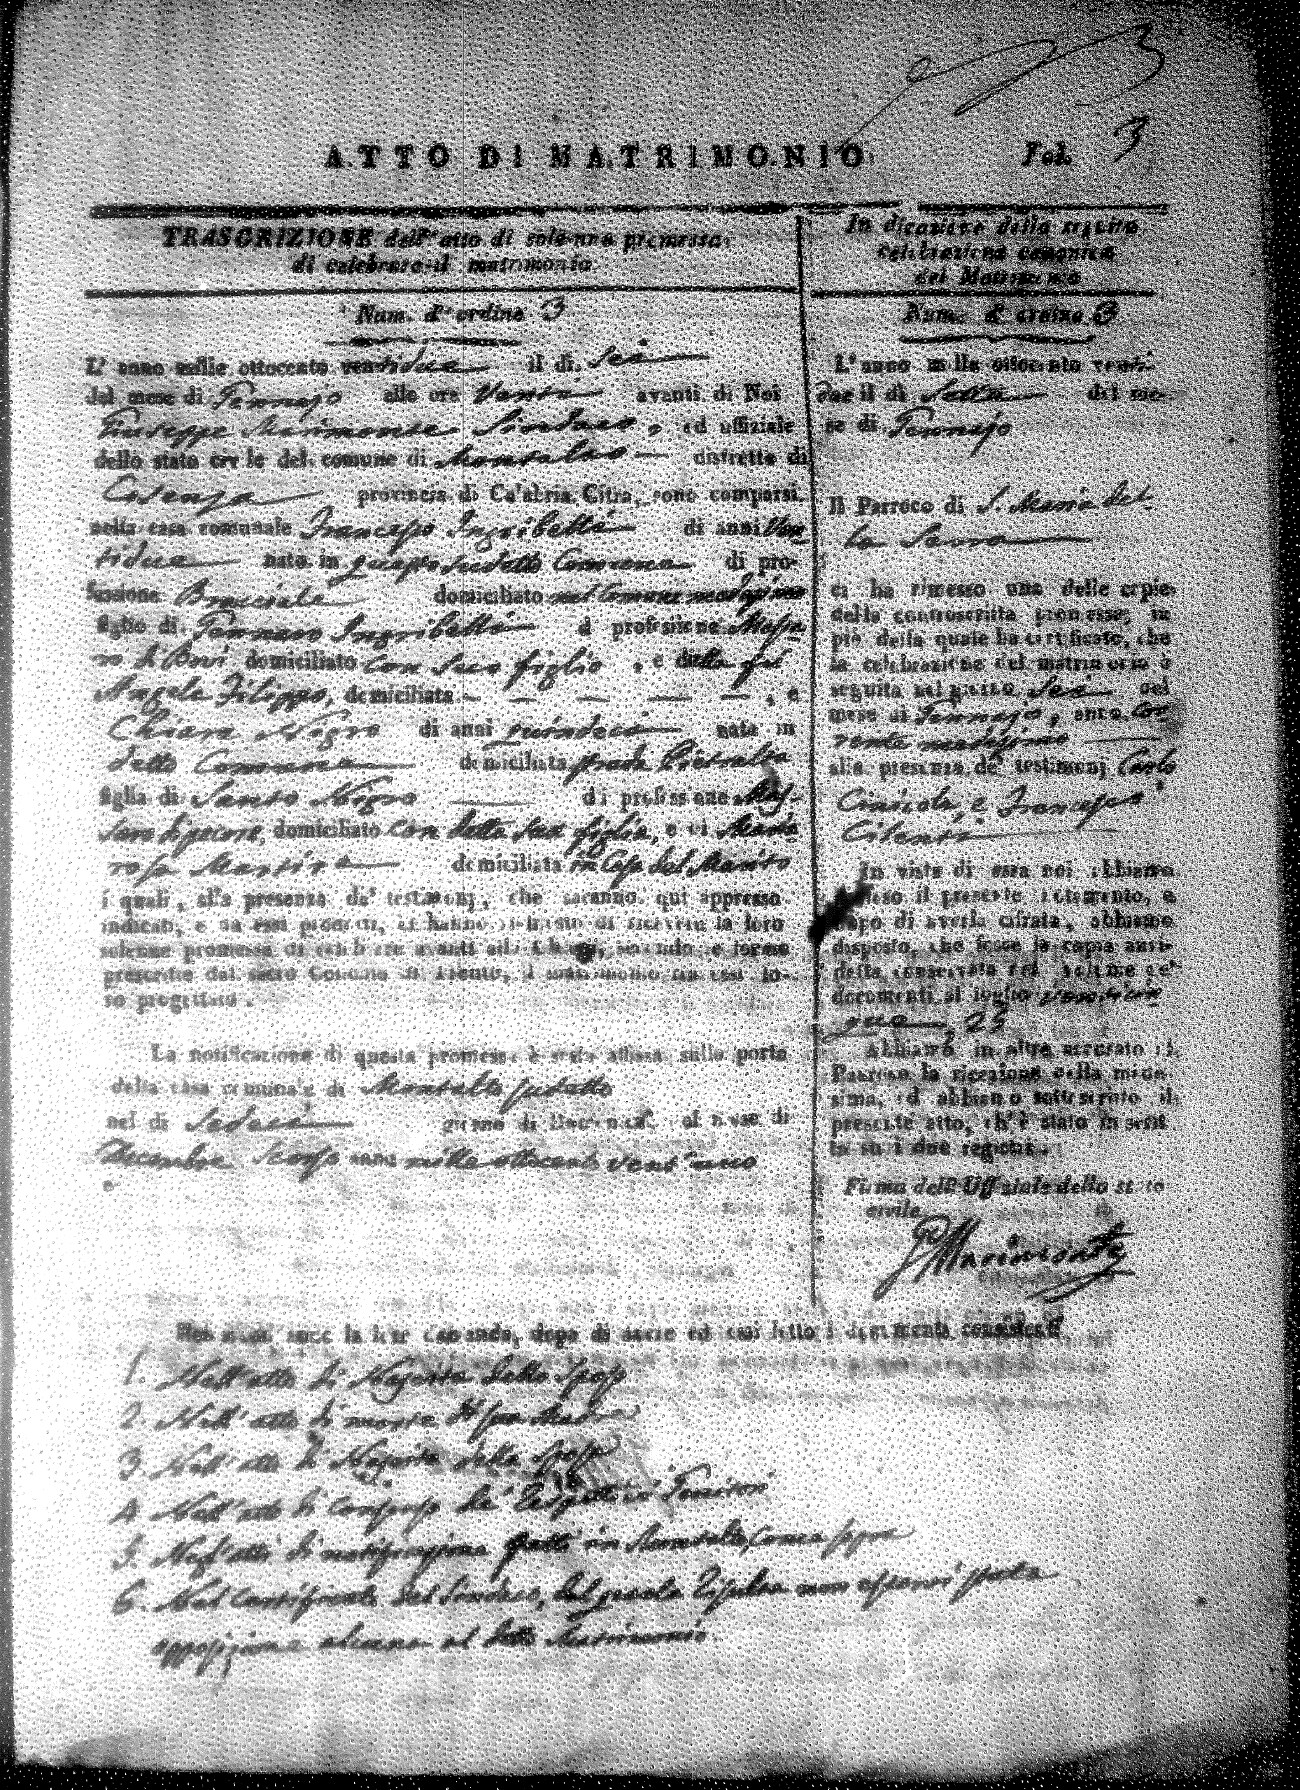 3
ATTO DI MATRIMONIO
Fol. 3
TRASCRIZIONE dell'atto di solenne promessa
di celebrare il matrimonio
Num. d'ordine 3
L'anno mille ottocento ventidue il dì Sei
del mese di Gennajo alle ore Venti avanti di Noi
Giuseppe Marimonte Sindaco, ed uffiziale
dello stato civile del comune di Montalto distretto di
Cosenza provincia di Calabria Citra, sono comparsi
nella casa comunale Francesco Ingribelli di anni Ven
tidue nato in questo sudetto Comune di pro-
fessione Bracciale domiciliato nel Comune medesimo
figlio di Gennaro Ingribelli di professione Massa
ro di Bovi domiciliato con suo figlio, e della fù
Angela Filippo, domiciliata — — — — —, e
Chiara Nigro di anni quindeci nata in
detto Comune domiciliata strada Pietralta
figlia di Santo Nigro di professione Mas-
saro di pecore, domiciliato con detta sua figlia, e di Maria
rosa Martire domiciliata in Casa del Marito
i quali, alla presenza de' testimonj, che saranno qui appresso
indicati, e da essi prodotti, ci hanno richiesto di ricevere la loro
solenne promessa di celebrare avanti alla Chiesa, secondo le forme
prescritte dal sacro Concilio di Trento, il matrimonio tra essi lo-
ro progettato.
La notificazione di questa promessa è stata affissa sulla porta
della casa comunale di Montalto sudetto
nel dì Sedeci giorno di Domenica del mese di
Decembre Scorso anno mille ottocento vent'uno
Indicazione della seguita
celebrazione canonica
del Matrimonio
Num. d'ordine 3
L'anno mille ottocento venti-
due il dì Sette del me-
se di Gennajo
Il Parroco di S. Maria del-
la Serra
ci ha rimesso una delle copie
della controscritta promessa, in
piè della quale ha certificato, che
la celebrazione del matrimonio è
seguita nel giorno Sei del
mese di Gennajo, anno cor
rente medesimo
alla presenza de' testimonj Carlo
Cinicola, e Francesco
Citenti
In vista di essa noi abbiamo
steso il presente notamento, e
dopo di averla cifrata, abbiamo
disposto, che fosse la copia anzi-
detta conservata nel volume de'
documenti al foglio
25
Abbiamo in oltre accusato al
Parroco la ricezione della mede-
sima, ed abbiamo sottoscritto il
presente atto, ch'è stato inscrit
to su i due registri.
Firma dell'Uffiziale dello stato
civile
G Marimonte
Noi secondo la loro domanda, dopo di avere ad essi letto i documenti consistenti
1. Nell'atto di Nascita dello sposo
2. Nell'atto di morte di sua Madre
3. Nell'atto di Nascita della sposa
4. Nell'atto di consenso de' rispettivi Genitori
5. Negl'atti di notificazione fatti in Montalto, come sopra
6. Nel Certificato del Sindaco, dal quale risulta non essersi fatta
opposizione alcuna al detto Matrimonio.